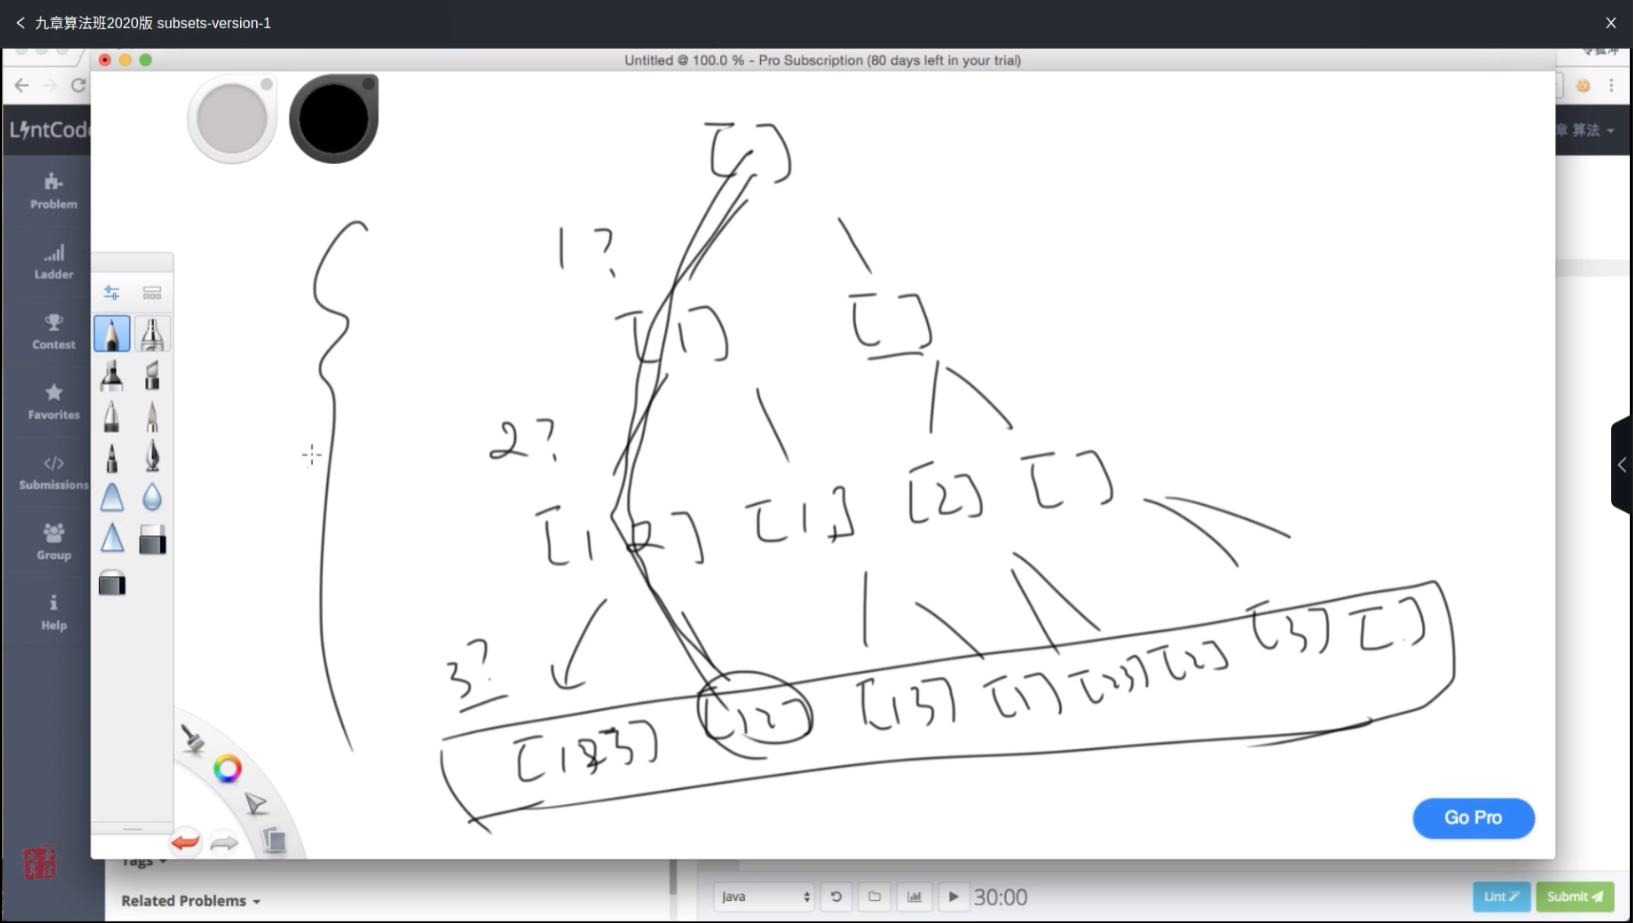 九章算法班2020版 subsets-version-1
Untitled @ 100.0 % - Pro Subscription (80 days left in your trial)
LintCode
章 算法
Problem
Ladder
Contest
Favorites
Submissions
Group
Help
[ ]
1 ?
[1] [ ]
2 ?
[1 2] [1] [2] [ ]
3 ?
[123] [12] [13] [1] [23] [2] [3] [ ]
Go Pro
Tags
Related Problems
Java
30:00
Lint
Submit